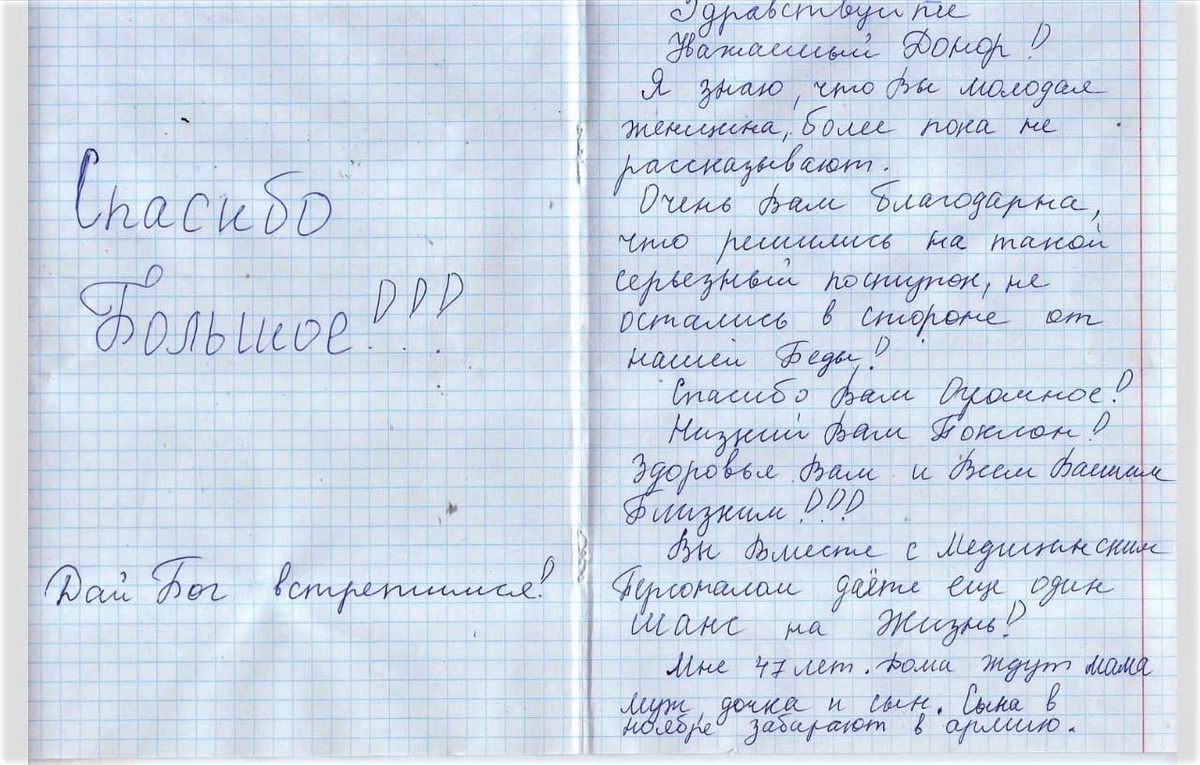 Спасибо
Большое!!!
Дай Бог встретимся!
Здравствуйте
Уважаемый Донор!
Я знаю, что Вы молодая
женщина, более пока не
рассказывают.
Очень Вам благодарна,
что решились на такой
серьезный поступок, не
остались в стороне от
нашей Беды!
Спасибо Вам Огромное!
Низкий Вам Поклон!
Здоровья Вам и Всем Вашим
Близким!!!
Вы Вместе с Медицинским
Персоналом даёте еще один
шанс на Жизнь!
Мне 47 лет. Дома ждут мама
муж дочка и сын. Сына в
ноябре забирают в армию.